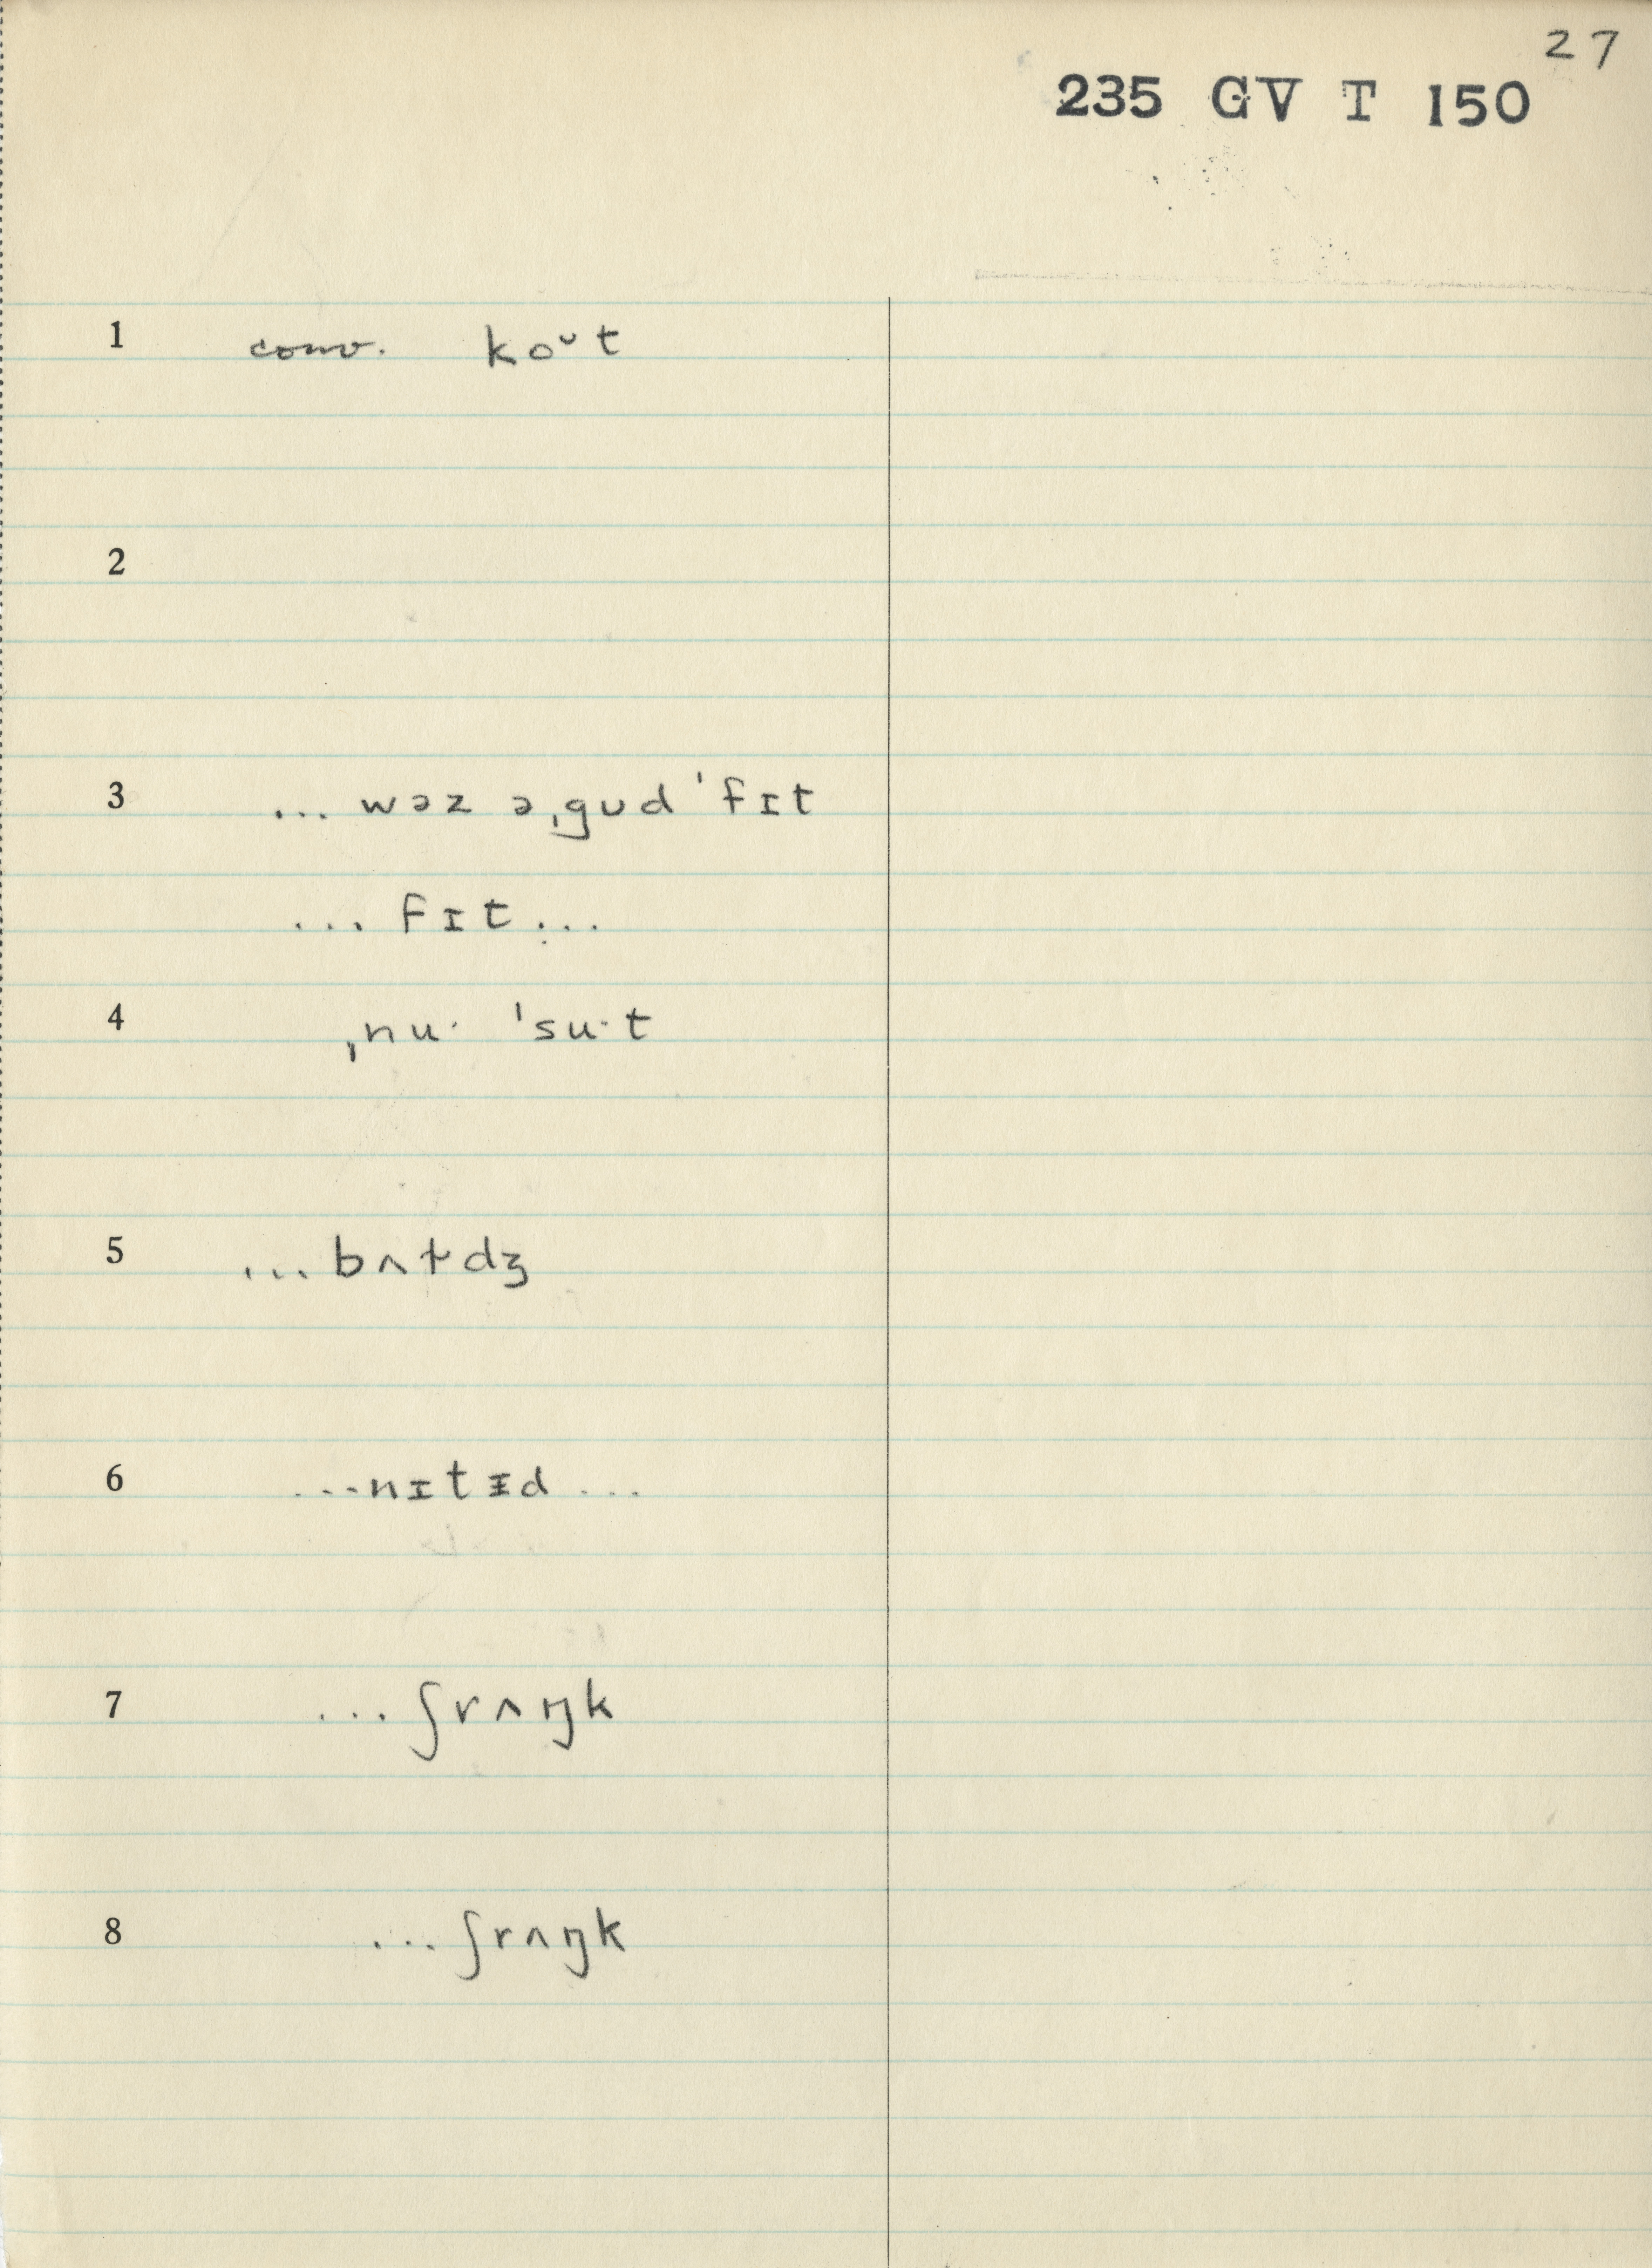 27
235 GV T 150
1 conv. koᴗt
2
3 ... wəz əˌgʊd ˈfɪt
... fɪt ...
4 ˌnu· ˈsu·t
5 ... bʌɫdʒ
6 ... nɪtᵻd ...
7 ... ʃrʌŋk
8 ... ʃrʌŋk